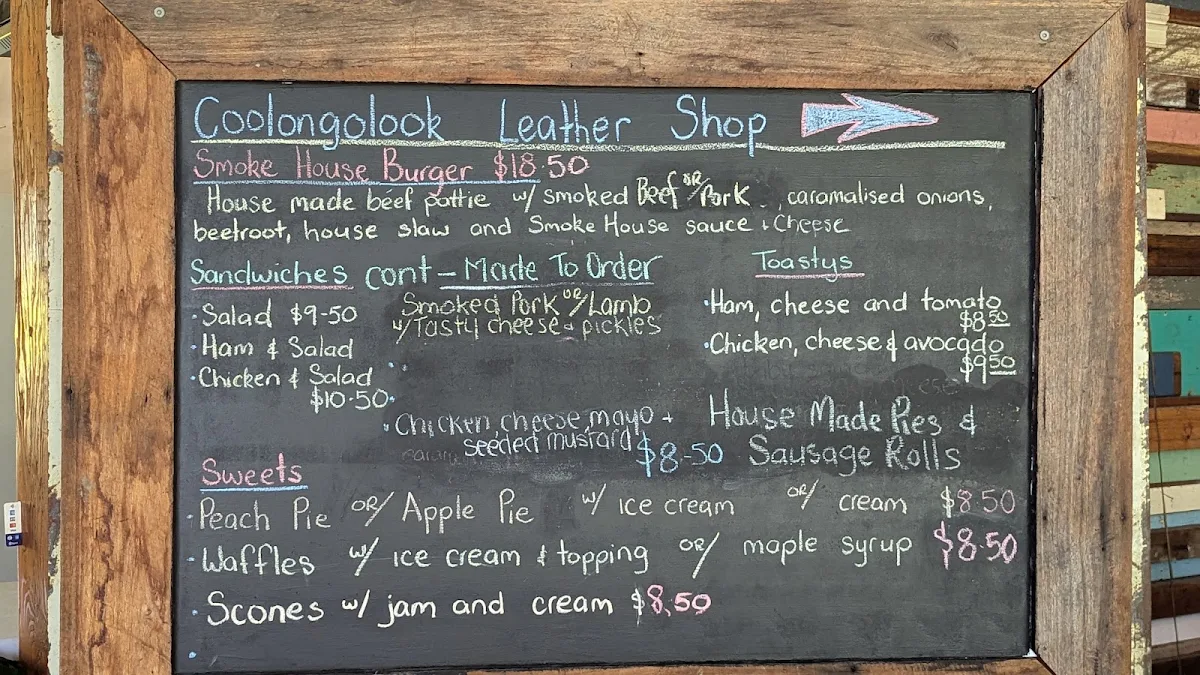 Coolongolook Leather Shop
Smoke House Burger $18.50
House made beef pattie w/ smoked Beef OR/ Pork, caramalised onions,
beetroot, house slaw and Smoke House sauce & Cheese
Sandwiches cont - Made To Order
· Salad $9-50
· Ham & Salad
· Chicken & Salad
$10.50
Smoked Pork OR/ Lamb
w/ Tasty cheese & pickles
· Chicken, cheese, mayo +
seeded mustard $8.50
Toastys
· Ham, cheese and tomato
$8.50
· Chicken, cheese & avocado
$9.50
House Made Pies &
Sausage Rolls
Sweets
· Peach Pie OR/ Apple Pie w/ ice cream OR/ cream $8.50
· Waffles w/ ice cream & topping OR/ maple syrup $8.50
· Scones w/ jam and cream $8.50